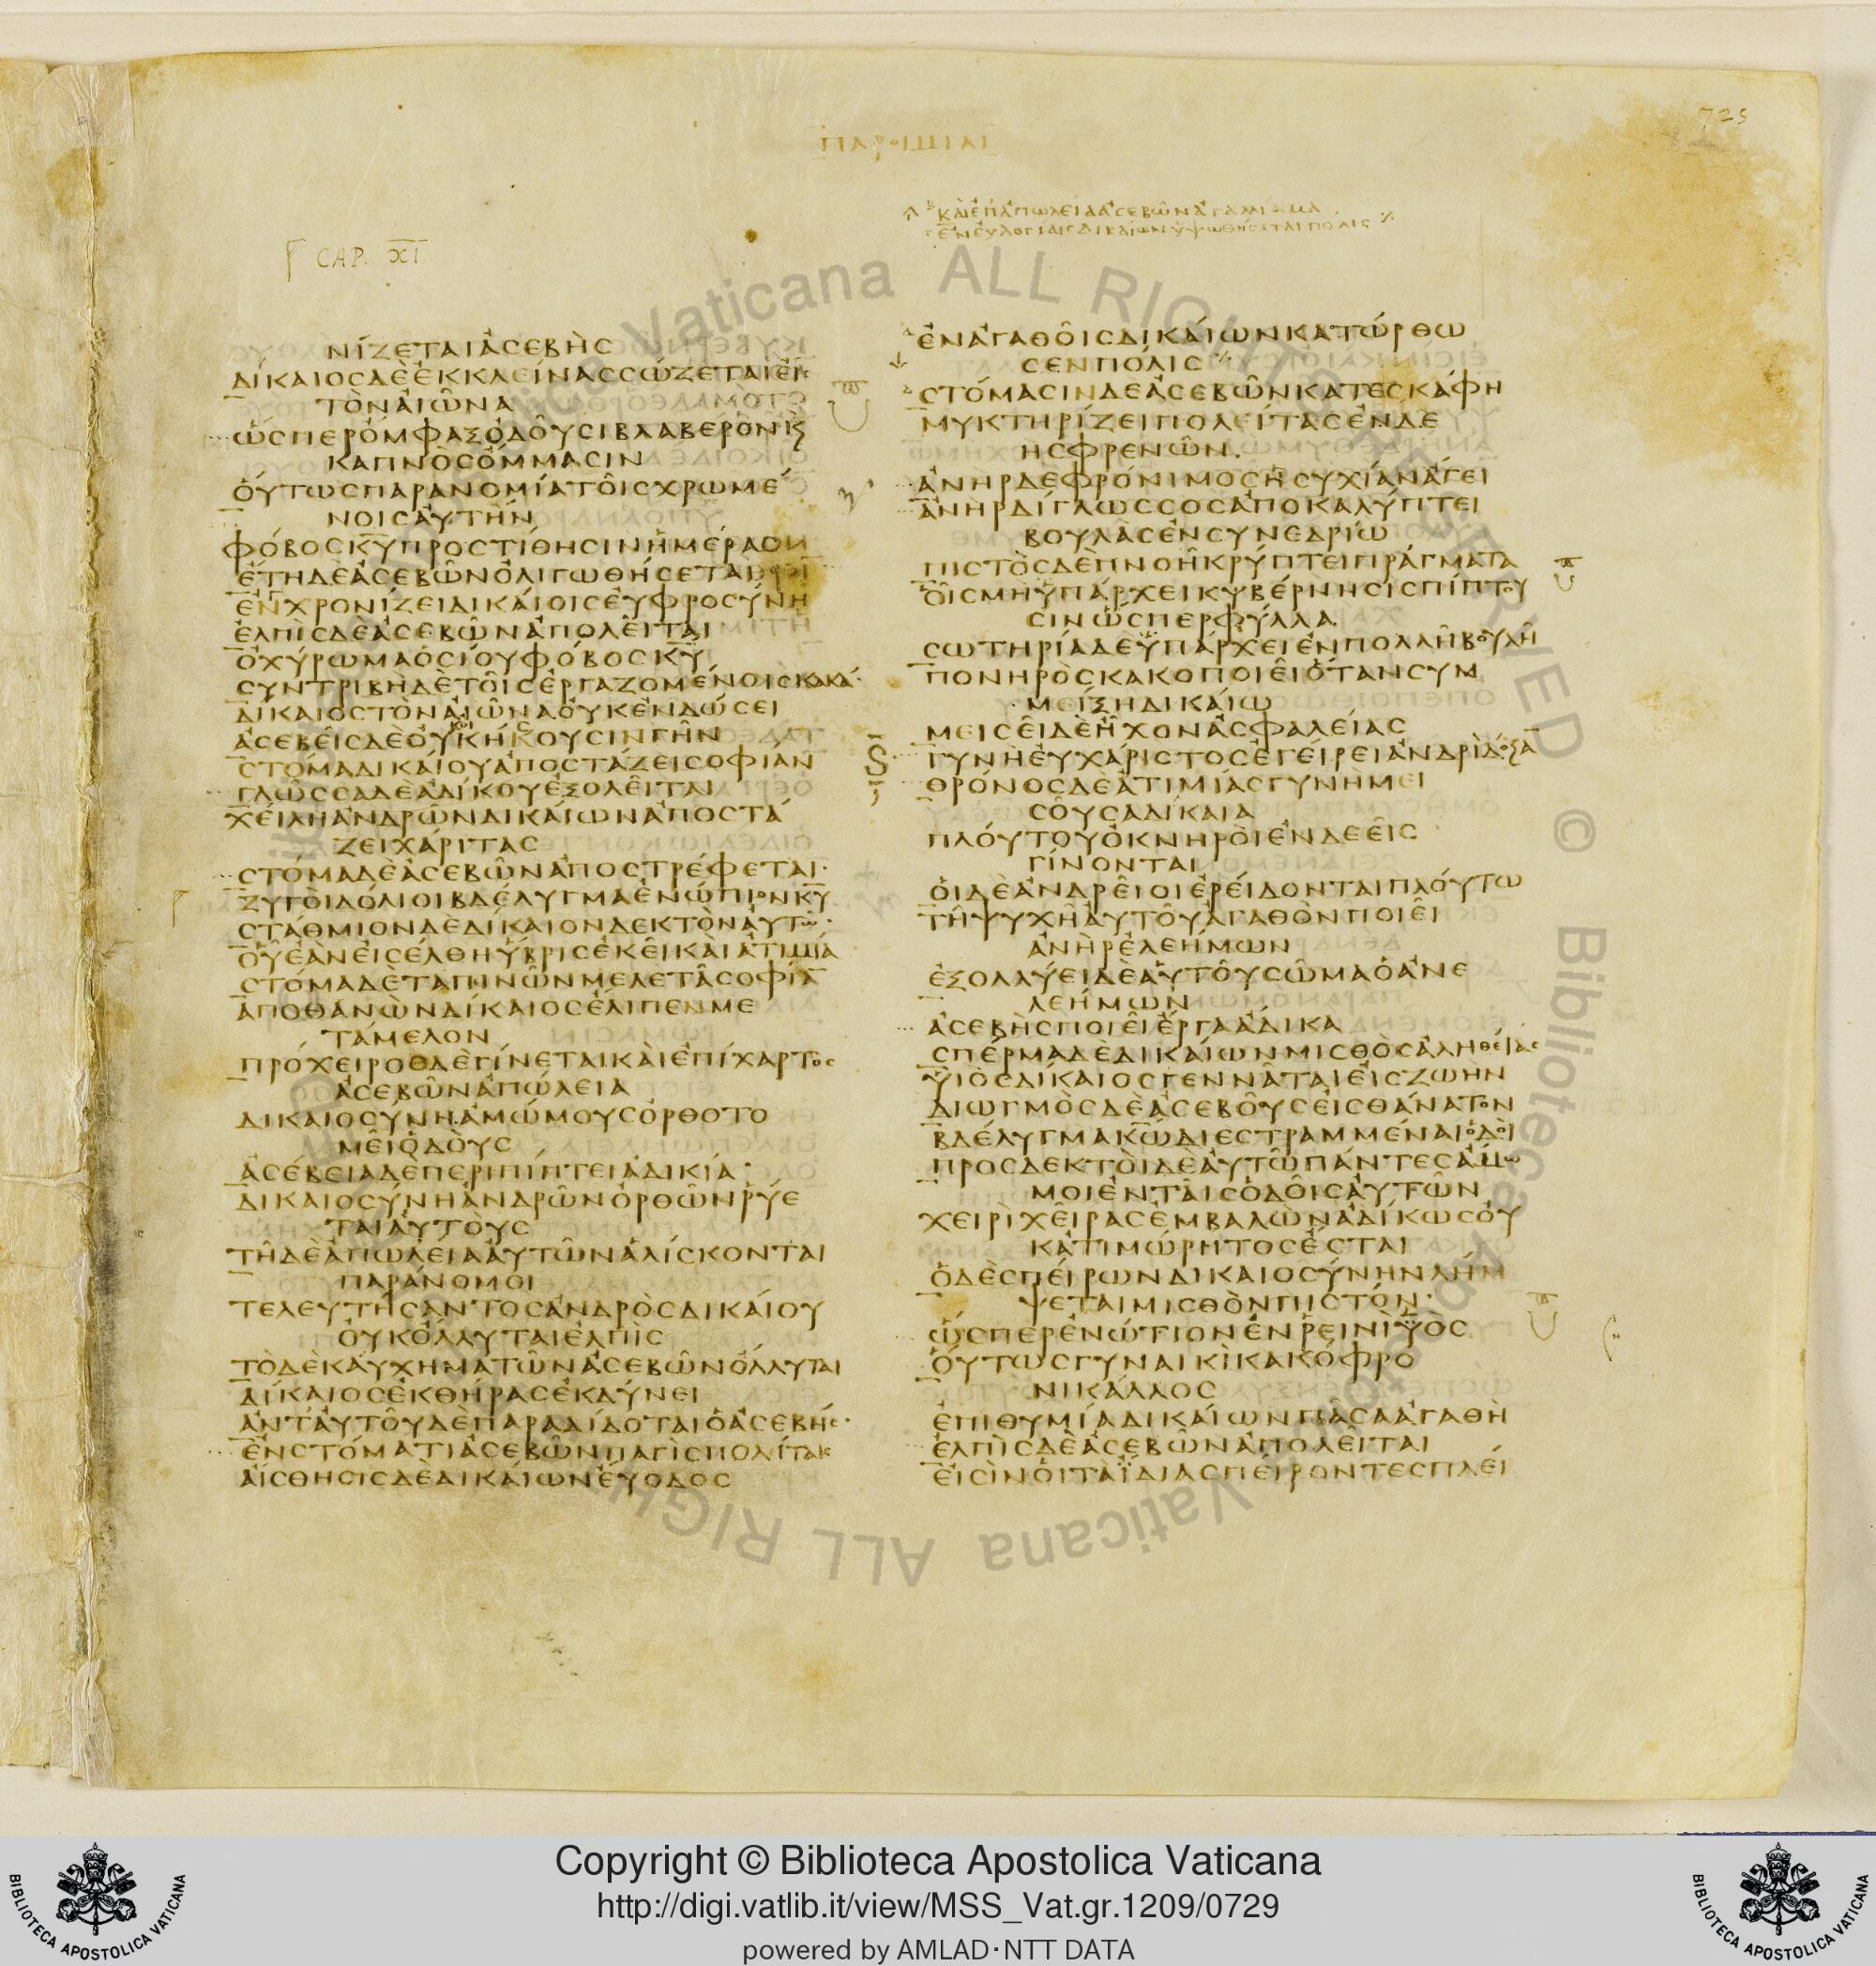 725
ΠΑΡΟΙΜΙΑΙ
ΚΑΙ ΕΠ ΑΠΩΛΕΙΑ ΑΣΕΒΩΝ ΑΓΑΛΛΙΑΜΑ
ΕΝ ΕΥΛΟΓΙΑΙΣ ΔΙΚΑΙΩΝ ΥΨΩΘΗΣΕΤΑΙ ΠΟΛΙΣ
CAP. XI
ΝΊΖΕΤΑΙ ἈϹΕΒῊϹ
ΔΊΚΑΙΟϹ ΔῈ ἘΚΚΛΕΊΝΑϹ ϹΏΖΕΤΑΙ ΕἸϹ
ΤῸΝ ΑἸΩ͂ΝΑ
ὭϹΠΕΡ ὌΜΦΑΞ ὈΔΟΥ͂ϹΙ ΒΛΑΒΕΡῸΝ Κ̀
ΚΑΠΝῸϹ ὌΜΜΑϹΙΝ
ΟὝΤΩϹ ΠΑΡΑΝΟΜΊΑ ΤΟΙ͂Ϲ ΧΡΩΜΕ
ΝΟΙϹ ΑΥ̓ΤΉΝ
ΦΌΒΟϹ Κ̅Υ̅ ΠΡΟϹΤΊΘΗϹΙΝ ἩΜΈΡΑϹ
ἜΤΗ ΔῈ ἈϹΕΒΩ͂Ν ὈΛΙΓΩΘΉϹΕΤΑΙ
ἘΝΧΡΟΝΊΖΕΙ ΔΙΚΑΊΟΙϹ ΕΥ̓ΦΡΟϹΎΝΗ
ἘΛΠῚϹ ΔῈ ἈϹΕΒΩ͂Ν ἈΠΟΛΕΙ͂ΤΑΙ
ὈΧΎΡΩΜΑ ὉϹΊΟΥ ΦΌΒΟϹ Κ̅Υ̅
ϹΥΝΤΡΙΒῊ ΔῈ ΤΟΙ͂Ϲ ἘΡΓΑΖΟΜΈΝΟΙϹ ΚΑΚΆ
ΔΊΚΑΙΟϹ ΤῸΝ ΑἸΩ͂ΝΑ ΟΥ̓Κ ἘΝΔΏϹΕΙ
ἈϹΕΒΕΙ͂Ϲ ΔῈ ΟΥ̓Κ ΟΙΚΗϹΟΥϹΙΝ ΓΗ͂Ν
ϹΤΌΜΑ ΔΙΚΑΊΟΥ ἈΠΟϹΤΆΖΕΙ ϹΟΦΊΑΝ
ΓΛΩ͂ϹϹΑ ΔῈ ἈΔΊΚΟΥ ἘΞΟΛΕΙ͂ΤΑΙ
ΧΕΊΛΗ ἈΝΔΡΩ͂Ν ΔΙΚΑΊΩΝ ἈΠΟϹΤΆ
ΖΕΙ ΧΆΡΙΤΑϹ
ϹΤΌΜΑ ΔῈ ἈϹΕΒΩ͂Ν ἈΠΟϹΤΡΈΦΕΤΑΙ
ΖΥΓΟῚ ΔΌΛΙΟΙ ΒΔΈΛΥΓΜΑ ἘΝΏΠΙΟΝ Κ̅Υ̅
ϹΤΆΘΜΙΟΝ ΔῈ ΔΊΚΑΙΟΝ ΔΕΚΤῸΝ ΑΥ̓ΤΩ͂
ΟὟ ἘᾺΝ ΕἸϹΈΛΘΗ ὝΒΡΙϹ ἘΚΕΙ͂ ΚΑῚ ἈΤΙΜΊΑ
ϹΤΌΜΑ ΔῈ ΤΑΠΙΝΩ͂Ν ΜΕΛΕΤΑ͂ ϹΟΦΊΑΝ
ἈΠΟΘΑΝῺΝ ΔΊΚΑΙΟϹ ἜΛΙΠΕΝ ΜΕ
ΤΆΜΕΛΟΝ
ΠΡΌΧΕΙΡΟϹ ΔῈ ΓΊΝΕΤΑΙ ΚΑῚ ἘΠΊΧΑΡΤΟϹ
ἈϹΕΒΩ͂Ν ἈΠΏΛΕΙΑ
ΔΙΚΑΙΟϹΎΝΗ ἈΜΏΜΟΥϹ ὈΡΘΟΤΟ
ΜΕΙ͂ ὉΔΟΎϹ
ἈϹΈΒΕΙΑ ΔῈ ΠΕΡΙΠΊΠΤΕΙ ἈΔΙΚΊΑ
ΔΙΚΑΙΟϹΎΝΗ ἈΝΔΡΩ͂Ν ὈΡΘΩ͂Ν ΡΎΕ
ΤΑΙ ΑΥ̓ΤΟΎϹ
ΤΗ͂ ΔῈ ἈΠΩΛΕΊΑ ΑΥ̓ΤΩ͂Ν ἉΛΊϹΚΟΝΤΑΙ
ΠΑΡΆΝΟΜΟΙ
ΤΕΛΕΥΤΉϹΑΝΤΟϹ ἈΝΔΡῸϹ ΔΙΚΑΊΟΥ
ΟΥ̓Κ ὌΛΛΥΤΑΙ ἘΛΠΊϹ
ΤῸ ΔῈ ΚΑΎΧΗΜΑ ΤΩ͂Ν ἈϹΕΒΩ͂Ν ὌΛΛΥΤΑΙ
ΔΊΚΑΙΟϹ ἘΚ ΘΉΡΑϹ ἘΚΔΎΝΕΙ
ἈΝΤ ΑΥ̓ΤΟΥ͂ ΔῈ ΠΑΡΑΔΊΔΟΤΑΙ Ὁ ἈϹΕΒΉϹ
ἘΝ ϹΤΌΜΑΤΙ ἈϹΕΒΩ͂Ν ΠΑΓῚϹ ΠΟΛΊΤΑΙϹ
ΑἼϹΘΗϹΙϹ ΔῈ ΔΙΚΑΊΩΝ ΕΥ̓́ΟΔΟϹ
ἘΝ ἈΓΑΘΟΙ͂Ϲ ΔΙΚΑΊΩΝ ΚΑΤΏΡΘΩ
ϹΕΝ ΠΌΛΙϹ
ϹΤΌΜΑϹΙΝ ΔῈ ἈϹΕΒΩ͂Ν ΚΑΤΕϹΚΆΦΗ
ΜΥΚΤΗΡΊΖΕΙ ΠΟΛΕΊΤΑϹ ἘΝΔΕ
ΗϹ ΦΡΕΝΩ͂Ν
ἈΝῊΡ ΔῈ ΦΡΌΝΙΜΟϹ ἩϹΥΧΊΑΝ ἌΓΕΙ
ἈΝῊΡ ΔΊΓΛΩϹϹΟϹ ἈΠΟΚΑΛΎΠΤΕΙ
ΒΟΥΛᾺϹ ἘΝ ϹΥΝΕΔΡΊΩ
ΠΙϹΤῸϹ ΔῈ ΠΝΟΗ͂ ΚΡΎΠΤΕΙ ΠΡΆΓΜΑΤΑ
ΟΙ͂Ϲ ΜῊ ὙΠΆΡΧΕΙ ΚΥΒΈΡΝΗϹΙϹ ΠΊΠΤΟΥ
ϹΙΝ ὭϹΠΕΡ ΦΎΛΛΑ
ϹΩΤΗΡΊΑ ΔῈ ὙΠΆΡΧΕΙ ἘΝ ΠΟΛΛΗ͂ ΒΟΥΛΗ͂
ΠΟΝΗΡῸϹ ΚΑΚΟΠΟΙΕΙ͂ ὍΤΑΝ ϹΥΜ
ΜΕΊΞΗ ΔΙΚΑΊΩ
ΜΕΙϹΕΙ͂ ΔῈ ἮΧΟΝ ἈϹΦΑΛΕΊΑϹ
ΓΥΝῊ ΕΥ̓ΧΆΡΙϹΤΟϹ ἘΓΕΊΡΕΙ ἈΝΔΡῚ ΔΌΞΑΝ
ΘΡΌΝΟϹ ΔῈ ἈΤΙΜΊΑϹ ΓΥΝῊ ΜΕΙ
ϹΟΥ͂ϹΑ ΔΊΚΑΙΑ
ΠΛΟΎΤΟΥ ὈΚΝΗΡΟῚ ἘΝΔΕΕΙ͂Ϲ
ΓΊΝΟΝΤΑΙ
ΟἹ ΔῈ ἈΝΔΡΕΙ͂ΟΙ ἘΡΕΊΔΟΝΤΑΙ ΠΛΟΎΤΩ
ΤΗ͂ ΨΥΧΗ͂ ΑΥ̓ΤΟΥ͂ ἈΓΑΘῸΝ ΠΟΙΕΙ͂
ἈΝῊΡ ἘΛΕΉΜΩΝ
ἘΞΟΛΛΎΕΙ ΔῈ ΑΥ̓ΤΟΥ͂ ϹΩ͂ΜΑ Ὁ ἈΝΕ
ΛΕΉΜΩΝ
ἈϹΕΒῊϹ ΠΟΙΕΙ͂ ἜΡΓΑ ἌΔΙΚΑ
ϹΠΈΡΜΑ ΔῈ ΔΙΚΑΊΩΝ ΜΙϹΘῸϹ ἈΛΗΘΕΊΑϹ
ΥἹῸϹ ΔΊΚΑΙΟϹ ΓΕΝΝΑ͂ΤΑΙ ΕἸϹ ΖΩΉΝ
ΔΙΩΓΜῸϹ ΔῈ ἈϹΕΒΟΥ͂Ϲ ΕἸϹ ΘΆΝΑΤΟΝ
ΒΔΈΛΥΓΜΑ Κ̅Ω̅ ΔΙΕϹΤΡΑΜΜΈΝΑΙ ὉΔΟΊ
ΠΡΟϹΔΕΚΤΟῚ ΔῈ ΑΥ̓ΤΩ͂ ΠΆΝΤΕϹ ἌΜΩ
ΜΟΙ ἘΝ ΤΑΙ͂Ϲ ὉΔΟΙ͂Ϲ ΑΥ̓ΤΩ͂Ν
ΧΕΙΡῚ ΧΕΙ͂ΡΑϹ ἘΜΒΑΛῺΝ ἈΔΊΚΩϹ ΟΥ̓
Κ ἈΤΙΜΏΡΗΤΟϹ ἜϹΤΑΙ
Ὁ ΔῈ ϹΠΕΊΡΩΝ ΔΙΚΑΙΟϹΎΝΗΝ ΛΉΜ
ΨΕΤΑΙ ΜΙϹΘῸΝ ΠΙϹΤΌΝ
ὭϹΠΕΡ ἘΝΏΤΙΟΝ ἘΝ ΡΕΙΝῚ ὙΌϹ
ΟὝΤΩϹ ΓΥΝΑΙΚῚ ΚΑΚΌΦΡΟ
ΝΙ ΚΆΛΛΟϹ
ἘΠΙΘΥΜΊΑ ΔΙΚΑΊΩΝ ΠΑ͂ϹΑ ἈΓΑΘῊ
ἘΛΠῚϹ ΔῈ ἈϹΕΒΩ͂Ν ἈΠΟΛΕΙ͂ΤΑΙ
ΕἸϹῚΝ ΟἹ ΤᾺ ἼΔΙΑ ϹΠΕΊΡΟΝΤΕϹ ΠΛΕΊ
Copyright © Biblioteca Apostolica Vaticana
http://digi.vatlib.it/view/MSS_Vat.gr.1209/0729
powered by AMLAD·NTT DATA
BIBLIOTECA APOSTOLICA VATICANA
BIBLIOTECA APOSTOLICA VATICANA